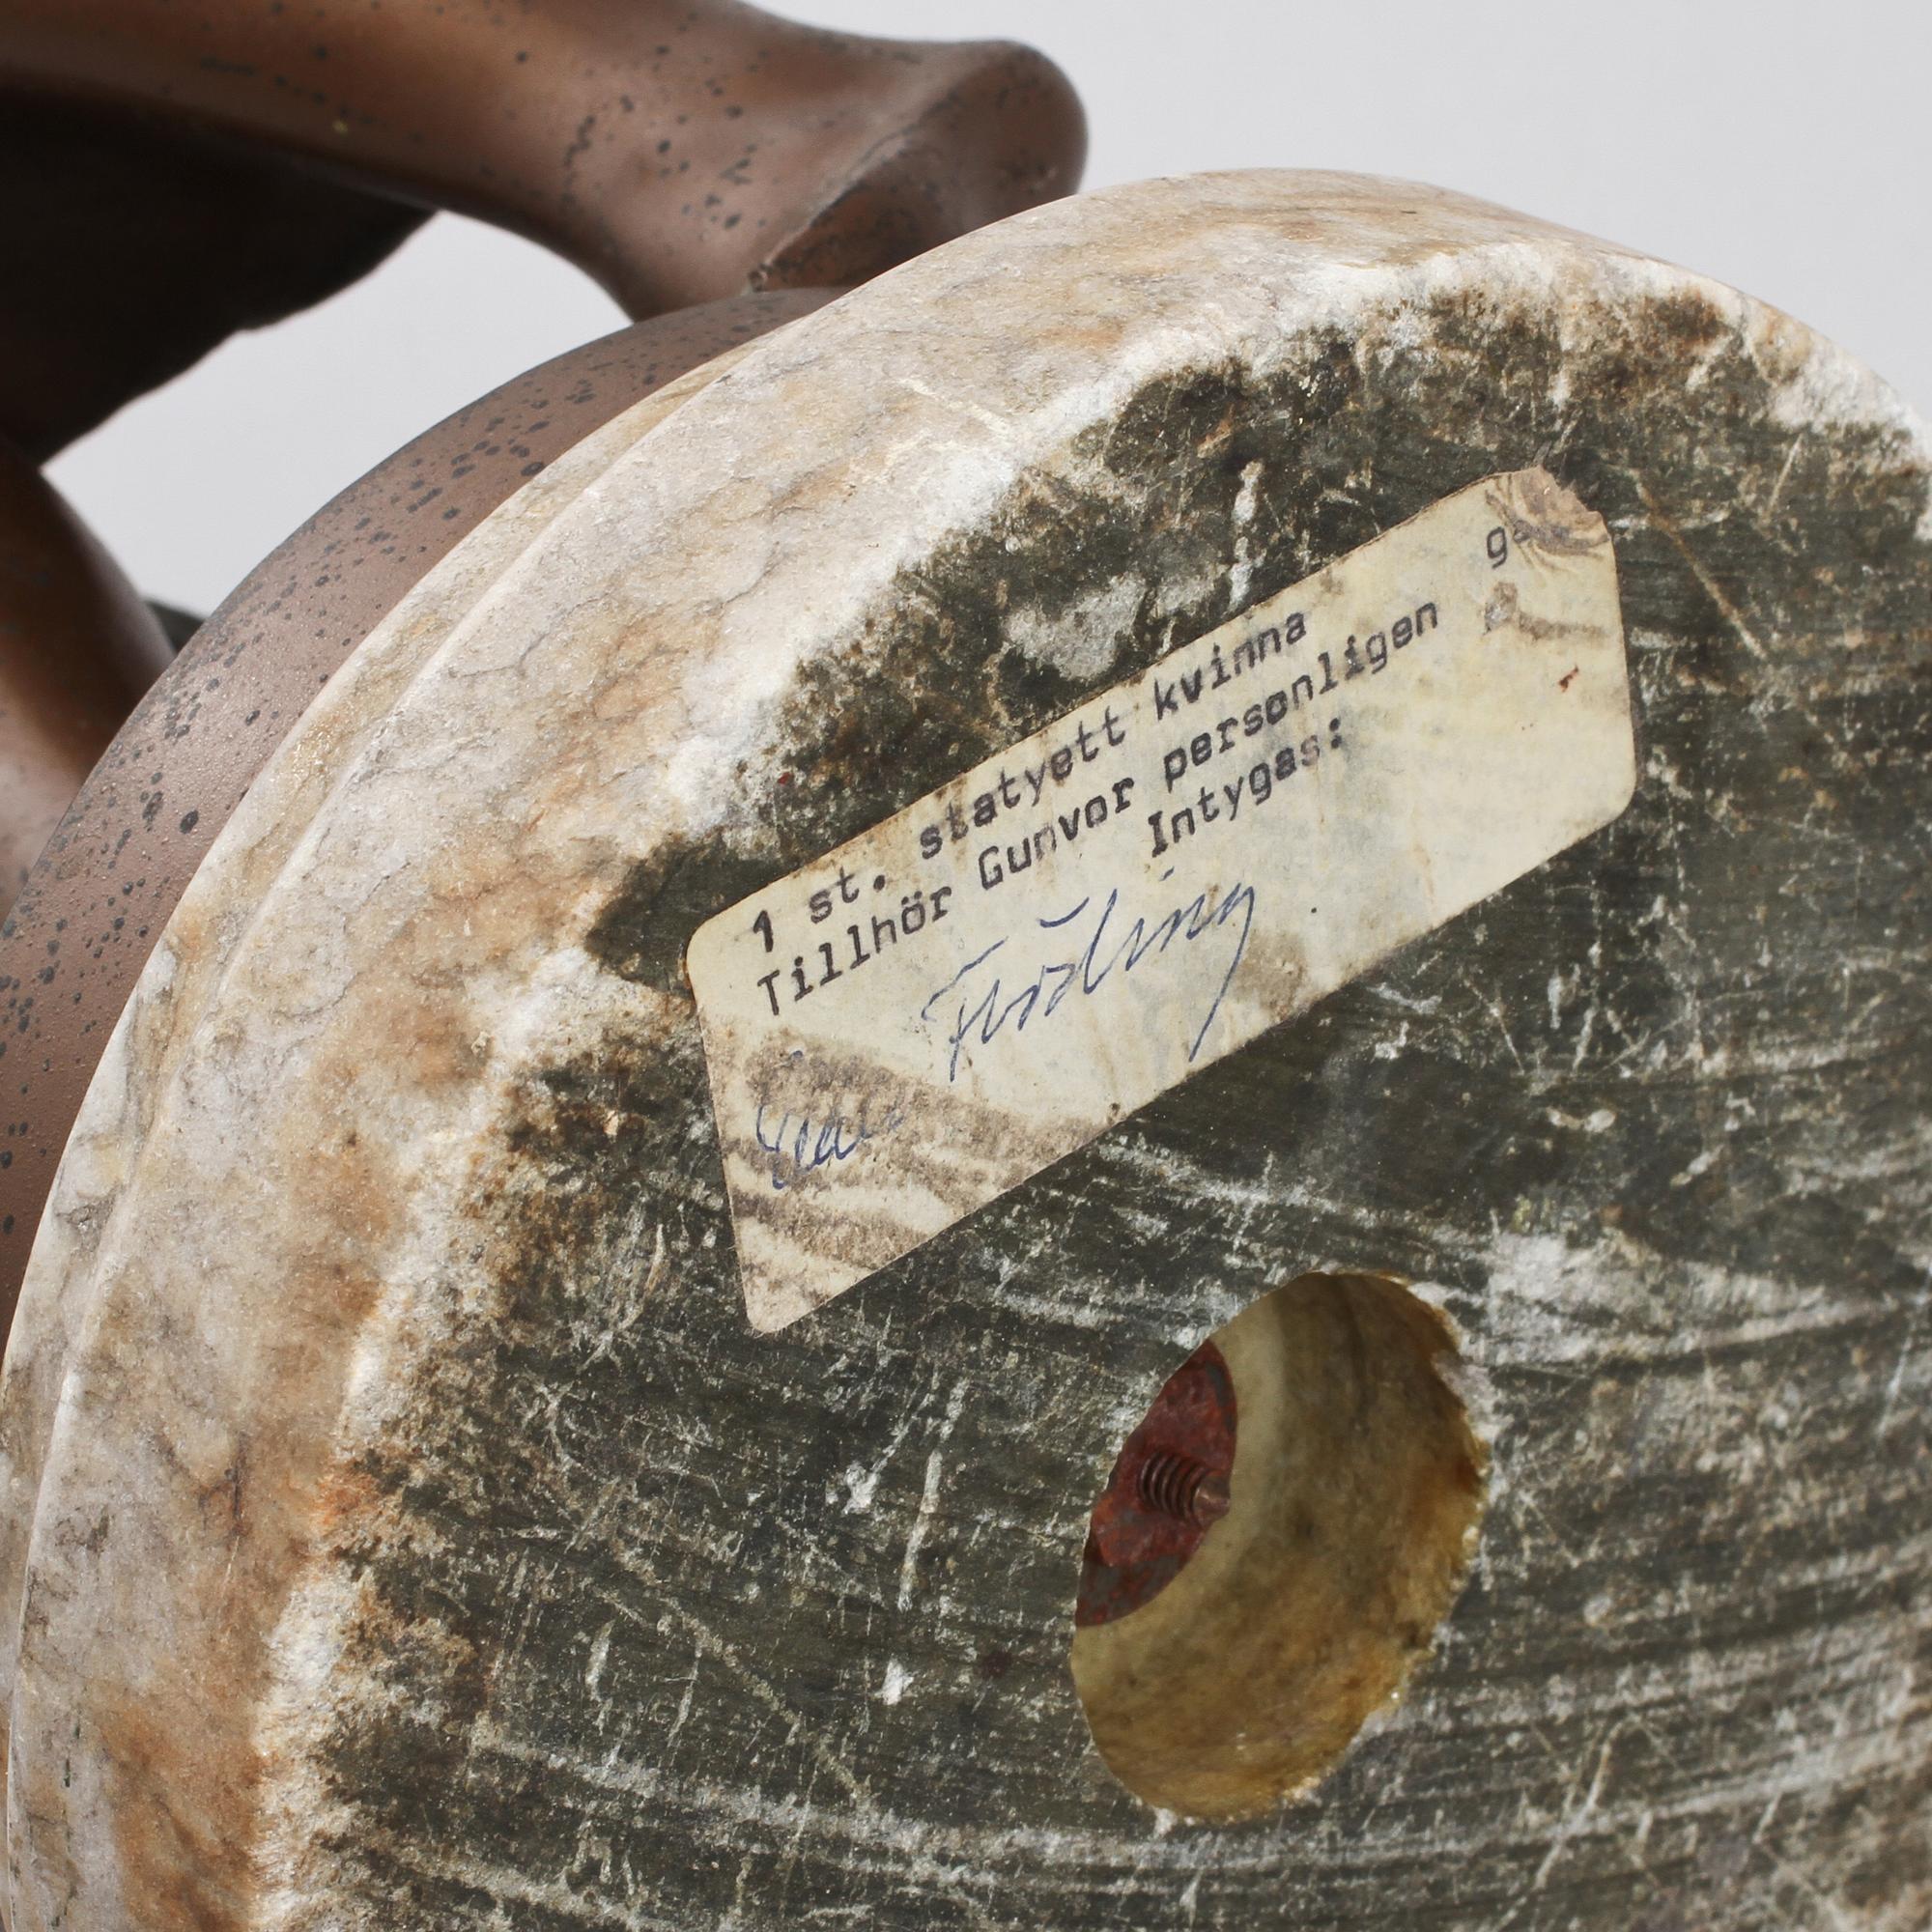 1 st. statyett kvinna
Tillhör Gunvor personligen
Intygas:
Fröding